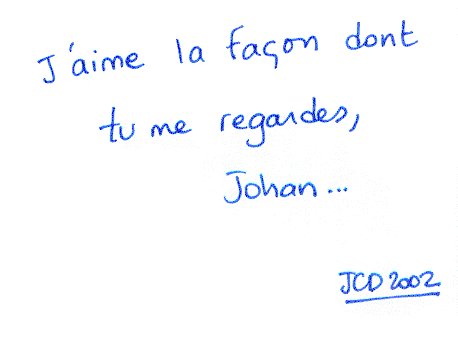 J'aime la façon dont
tu me regardes,
Johan...
JCD2002